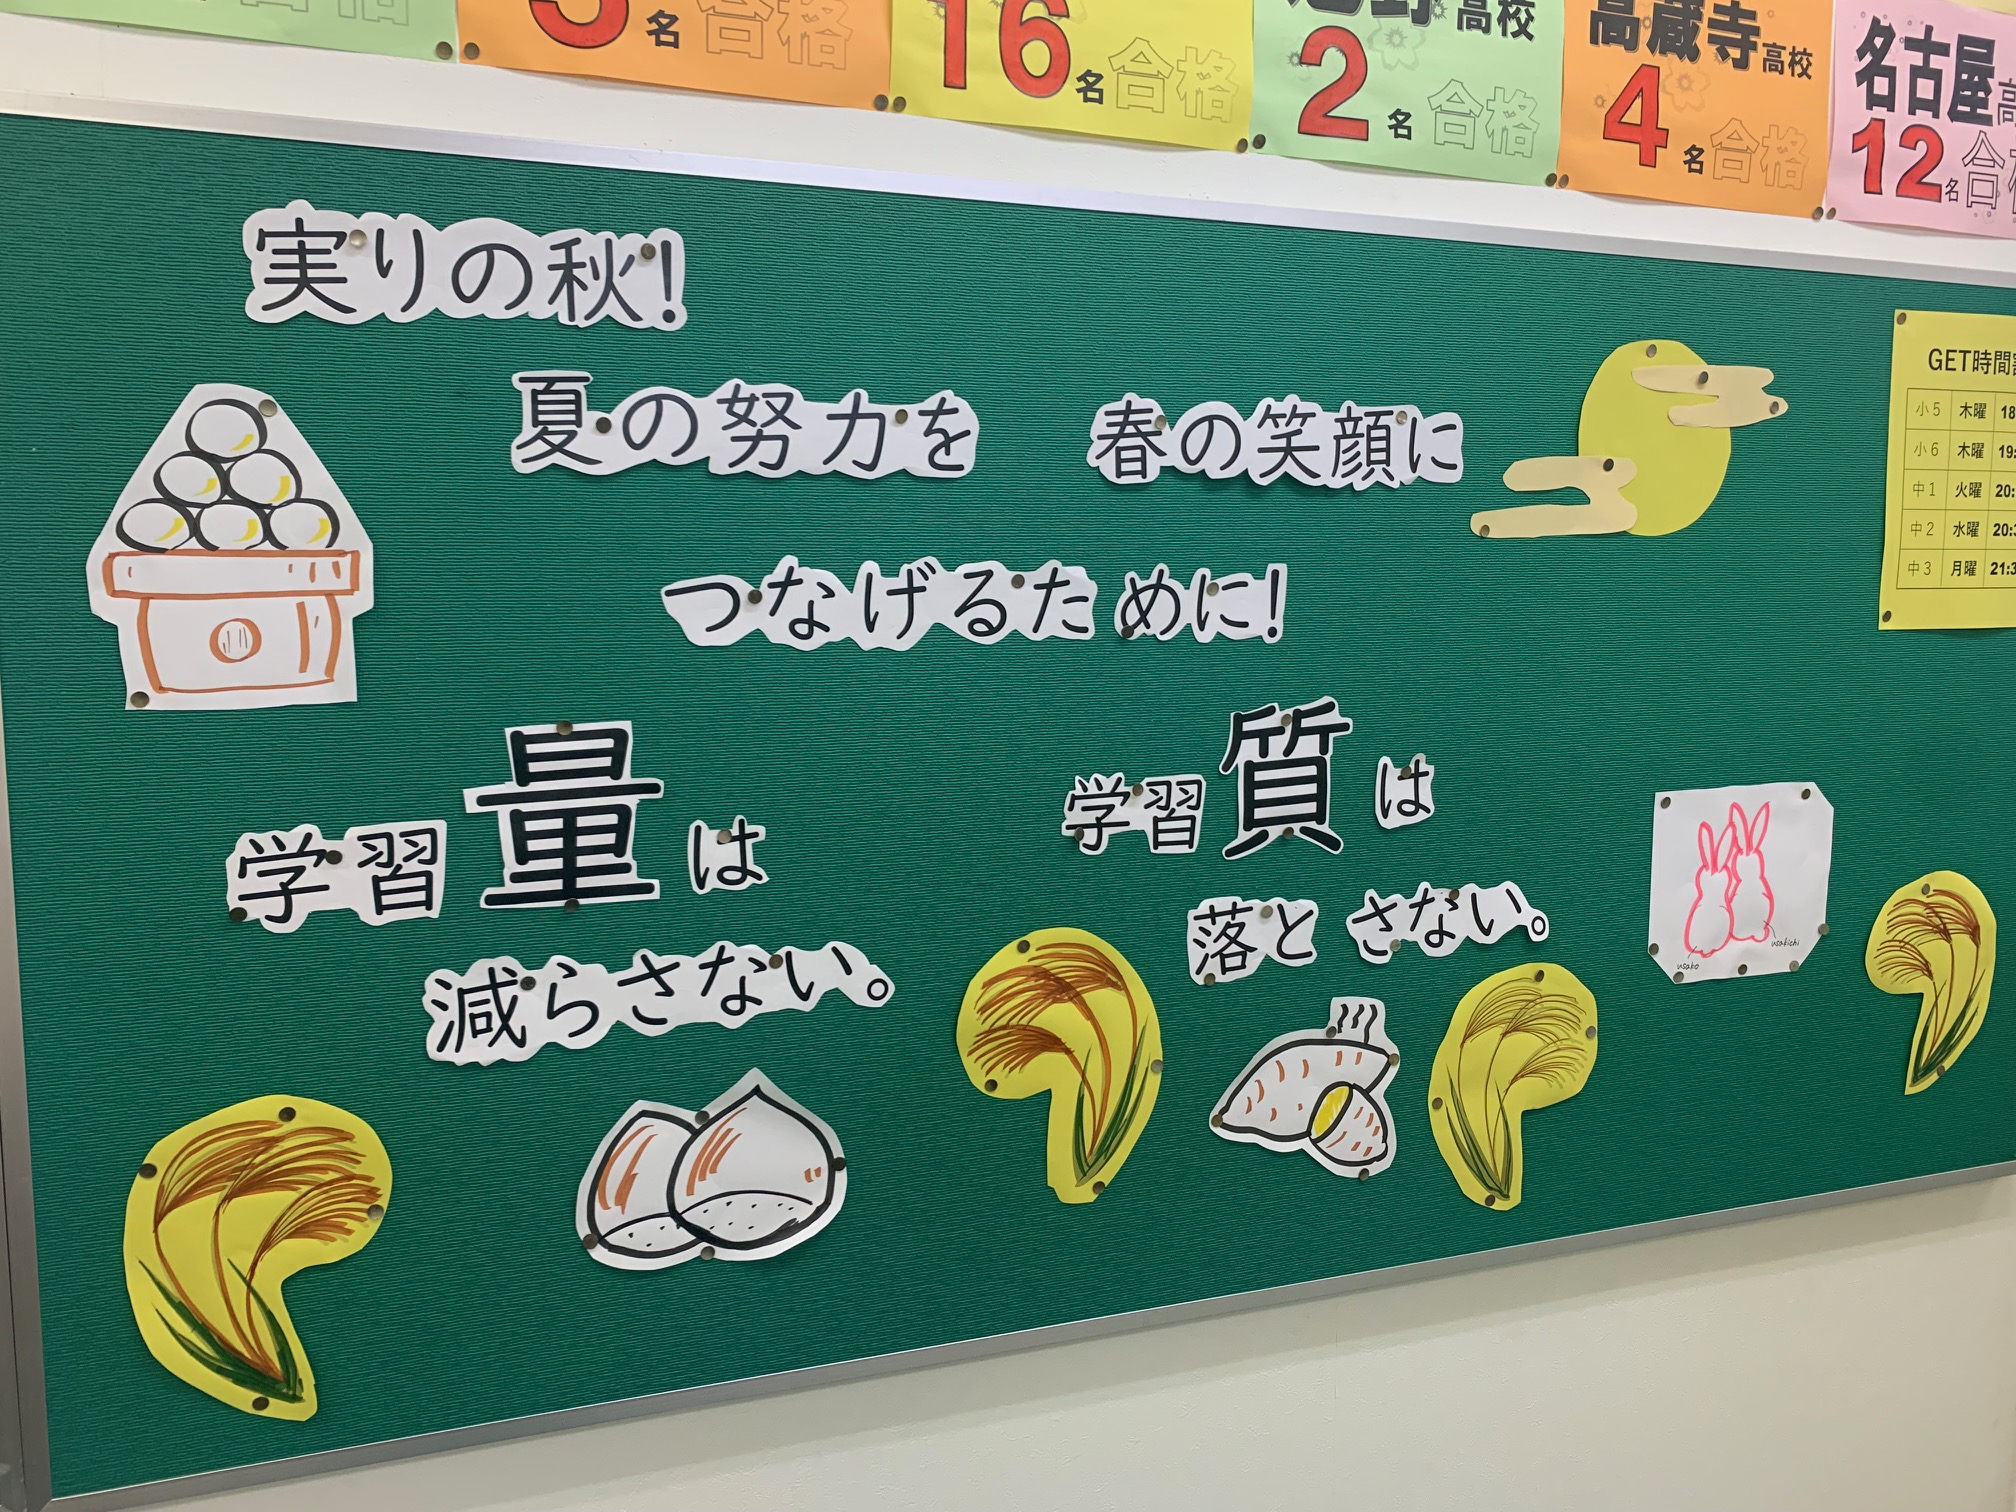 3名合格
16名合格
高校
2名合格
高蔵寺高校
4名合格
名古屋高
12名合格
実りの秋!
夏の努力を 春の笑顔に
つなげるために!
学習量は
減らさない。
学習質は
落とさない。
GET時間
小5 木曜 18
小6 木曜 19:
中1 火曜 20:
中2 水曜 20:3
中3 月曜 21:3
usako
usakichi